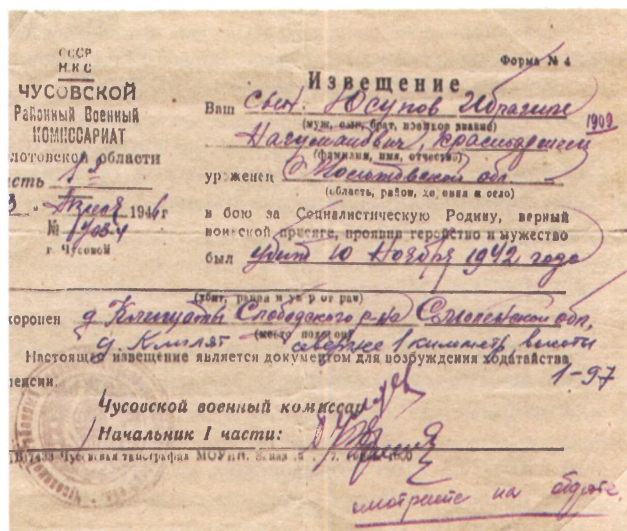 СССР
Н.К.О
ЧУСОВСКОЙ
Районный Военный
КОМИССАРИАТ
лотовской области
сть 1я
1944г
№
г. Чусовой
Форма № 4
Извещение
Ваш сын Юсупов Ибрагим
1909
(муж, сын, брат, воинское звание)
красноармеец
(фамилия, имя, отчество)
уроженец Молотовской обл.
(область, район, деревня и село)
в бою за Социалистическую Родину, верный
воинской присяге, проявив геройство и мужество
был убит 10 Ноября 1942 года
(убит, ранен и умер от ран)
хоронен д. Слободского р-на Смоленской обл,
(место похорон)
севернее 1 километр высоты
1-97
Настоящее извещение является документом для возбуждения ходатайства
пенсии.
Чусовской военный комиссар
Начальник I части:
Чусовская типография
смотрите на обороте.